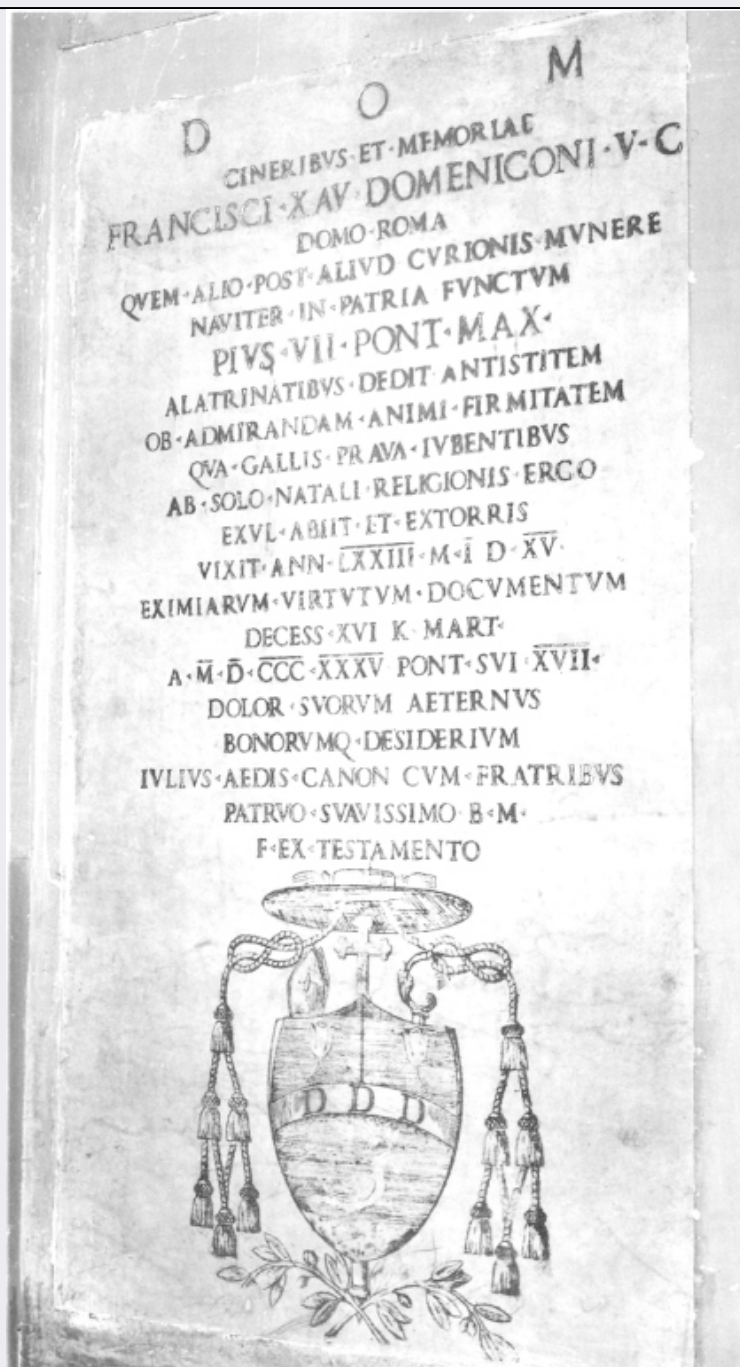 D O M
CINERIBVS·ET·MEMORIAE
FRANCISCI·XAV·DOMENICONI·V·C
DOMO·ROMA
QVEM·ALIO·POST·ALIVD CVRIONIS·MVNERE
NAVITER·IN·PATRIA FVNCTVM
PIVS·VII·PONT·MAX·
ALATRINATIBVS·DEDIT·ANTISTITEM
OB·ADMIRANDAM·ANIMI·FIRMITATEM
QVA·GALLIS·PRAVA·IVBENTIBVS
AB·SOLO·NATALI·RELIGIONIS·ERGO
EXVL·ABIIT·ET·EXTORRIS
VIXIT·ANN·L̅X̅X̅I̅I̅I̅·M·I̅ D·X̅V̅·
EXIMIARVM·VIRTVTVM·DOCVMENTVM
DECESS·XVI K·MART·
A·M̅·D̅·C̅C̅C̅·X̅X̅X̅V̅ PONT·SVI·X̅V̅I̅I̅·
DOLOR·SVORVM AETERNVS
BONORVMQ·DESIDERIVM
IVLIVS·AEDIS·CANON CVM·FRATRIBVS
PATRVO·SVAVISSIMO·B·M·
F·EX·TESTAMENTO
D D D